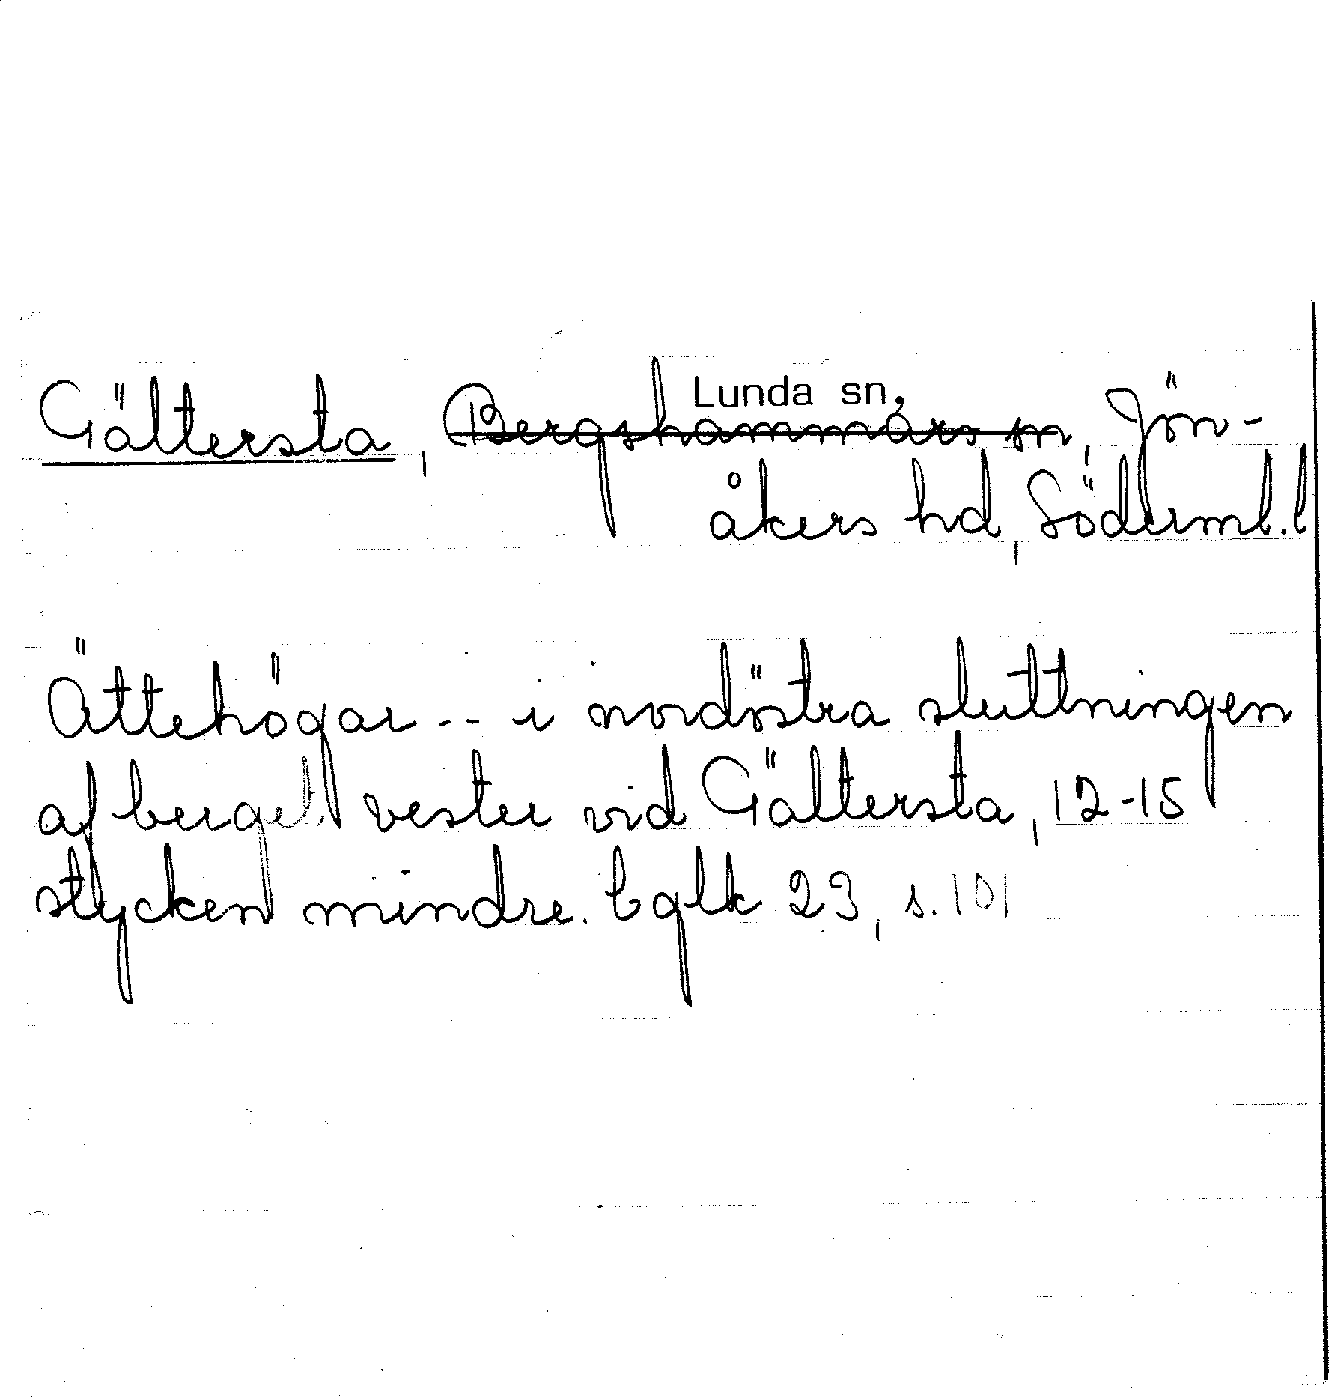 Gältersta, Lunda sn, Bergshammars sn, Jön-
åkers hd, Söderml. l
Ättehögar -- i nordöstra sluttningen
af berget vester vid Gältersta, 12-15
stycken mindre. Eglk 23, s. 101